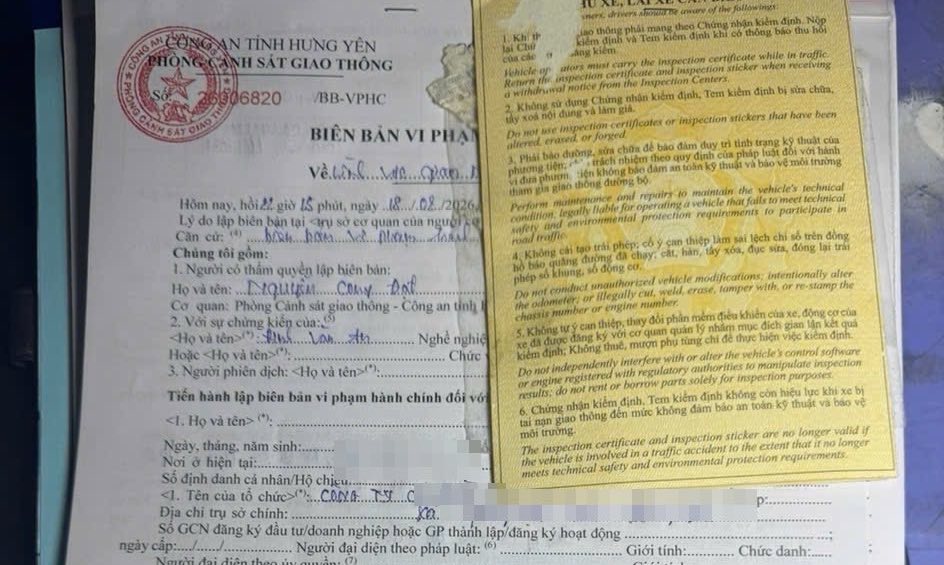 CÔNG AN TỈNH HƯNG YÊN
PHÒNG CẢNH SÁT GIAO THÔNG
PHÒNG CẢNH SÁT GIAO THÔNG
Số: 26006820 /BB-VPHC
BIÊN BẢN VI PHẠM
Về
Hôm nay, hồi giờ 15 phút, ngày 18 /08 /2026
Lý do lập biên bản tại <trụ sở cơ quan của người
Căn cứ: (4) biên bản
Chúng tôi gồm:
1. Người có thẩm quyền lập biên bản:
Họ và tên: Nguyễn Công Đạt
Cơ quan: Phòng Cảnh sát giao thông - Công an tỉnh
2. Với sự chứng kiến của:(5)
<Họ và tên>(*): Đinh Văn An Nghề nghiệ
Hoặc <Họ và tên>(*): Chức
3. Người phiên dịch: <Họ và tên>(*):
Tiến hành lập biên bản vi phạm hành chính đối với
<1. Họ và tên> (*):
Ngày, tháng, năm sinh:
Nơi ở hiện tại:
Số định danh cá nhân/Hộ chiếu
<1. Tên của tổ chức>(*): CÔNG TY
Địa chỉ trụ sở chính:
Số GCN đăng ký đầu tư/doanh nghiệp hoặc GP thành lập/đăng ký hoạt động ;
ngày cấp:..../..../ Người đại diện theo pháp luật: (6) Giới tính: Chức danh: ;
XE, LÁI XE CẦN
owners, drivers should be aware of the followings:
1. Khi giao thông phải mang theo Chứng nhận kiểm định. Nộp
lại kiểm định và Tem kiểm định khi có thông báo thu hồi
của đăng kiểm.
Vehicle must carry the inspection certificate while in traffic.
Return the inspection certificate and inspection sticker when receiving
a withdrawal notice from the Inspection Centers.
2. Không sử dụng Chứng nhận kiểm định, Tem kiểm định bị sửa chữa,
tẩy xoá nội dung và làm giả.
Do not use inspection certificates or inspection stickers that have been
altered, erased, or forged.
3. Phải bảo dưỡng, sửa chữa để bảo đảm duy trì tình trạng kỹ thuật của
phương tiện; trách nhiệm theo quy định của pháp luật đối với hành
vi đưa phương tiện không bảo đảm an toàn kỹ thuật và bảo vệ môi trường
tham gia giao thông đường bộ.
Perform maintenance and repairs to maintain the vehicle's technical
condition, legally liable for operating a vehicle that fails to meet technical
safety and environmental protection requirements to participate in
road traffic.
4. Không cải tạo trái phép; cố ý can thiệp làm sai lệch chỉ số trên đồng
hồ báo quãng đường đã chạy; cắt, hàn, tẩy xóa, đục sửa, đóng lại trái
phép số khung, số động cơ.
Do not conduct unauthorized vehicle modifications; intentionally alter
the odometer; or illegally cut, weld, erase, tamper with, or re-stamp the
chassis number or engine number.
5. Không tự ý can thiệp, thay đổi phần mềm điều khiển của xe, động cơ của
xe đã được đăng ký với cơ quan quản lý nhằm mục đích gian lận kết quả
kiểm định; Không thuê, mượn phụ tùng chỉ để thực hiện việc kiểm định.
Do not independently interfere with or alter the vehicle's control software
or engine registered with regulatory authorities to manipulate inspection
results; do not rent or borrow parts solely for inspection purposes.
6. Chứng nhận kiểm định, Tem kiểm định không còn hiệu lực khi xe bị
tai nạn giao thông đến mức không đảm bảo an toàn kỹ thuật và bảo vệ
môi trường.
The inspection certificate and inspection sticker are no longer valid if
the vehicle is involved in a traffic accident to the extent that it no longer
meets technical safety and environmental protection requirements.